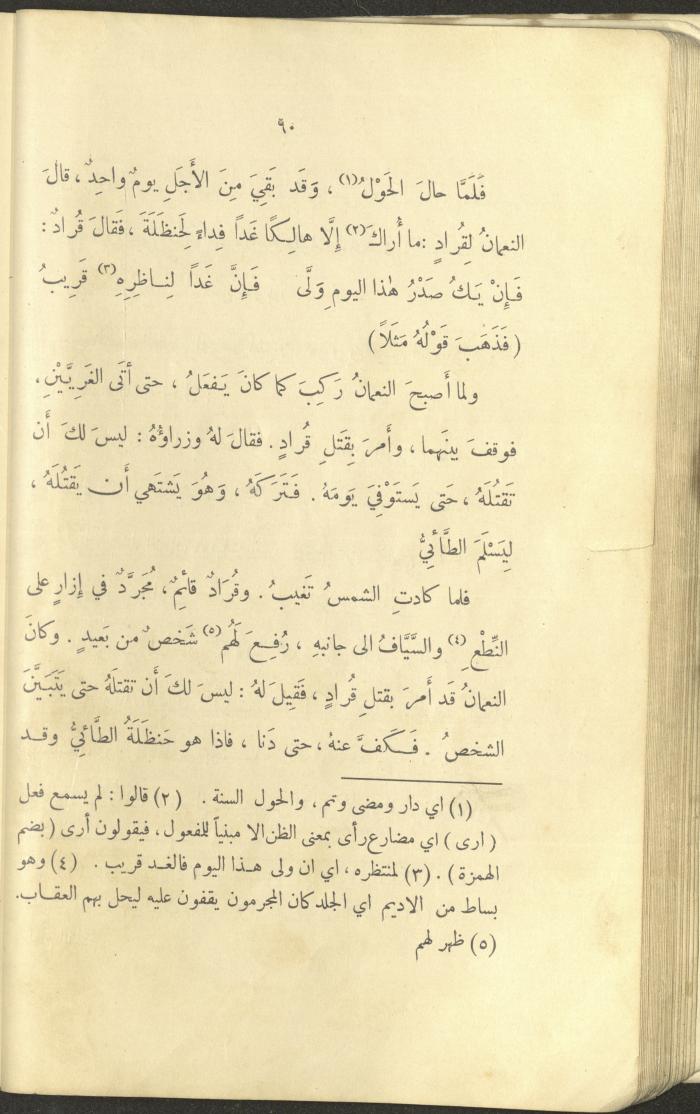 ٩٠
فَلَمَّا حالَ الحَوْلُ(١) ، وَقَد بَقِيَ مِنَ الأَجَلِ يومٌ واحِدٌ ، قالَ
النعمانُ لِقُرادٍ : ما أُراكَ(٢) إِلَّا هالِكًا غَداً فِداءٍ لِحَنظَلَةَ ، فَقالَ قُرادٌ :
فَإِنْ يَكُ صَدْرُ هٰذا اليومِ وَلَّى فَإِنَّ غَداً لِناظِرِهِ(٣) قَرِيبُ
( فَذَهَبَ قَوْلُهُ مَثَلاً )
ولما أَصبحَ النعمانُ رَكِبَ كما كانَ يَفعَلُ ، حتى أَتَى الغَرِيَّيْنِ ،
فوقفَ بينَهما ، وأَمرَ بِقَتلِ قُرادٍ . فقالَ لهُ وزراؤُهُ : ليسَ لكَ أَن
تَقتُلَهُ ، حَتى يَستَوْفِيَ يَومَهُ . فَتَرَكَهُ ، وَهُوَ يَشتَهي أَن يَقتُلَهُ ،
لِيَسْلَمَ الطَّائِيُّ
فلما كادتِ الشمسُ تَغيبُ . وقُرَادٌ قائِمٌ ، مُجَرَّدٌ في إِزارٍ على
النِّطْعِ(٤) والسَّيَّافُ الى جانبهِ ، رُفِعَ لَهُم(٥) شَخصٌ من بَعيدٍ . وكانَ
النعمانُ قَد أَمرَ بقتلِ قُرادٍ ، فَقِيلَ لهُ : ليسَ لكَ أَن تقتلَهُ حتى يَتَبَيَّنَ
الشخصُ . فَكَفَّ عنهُ ، حتى دَنا ، فاذا هو حَنظَلَةُ الطَّائِيُّ وقد
(١) اي دار ومضى وتم ، والحول السنة . (٢) قالوا : لم يسمع فعل
( ارى ) اي مضارع رأى بمعنى الظن الا مبنياً للمفعول ، فيقولون أرى ( بضم
الهمزة ) . (٣) لمنتظره ، اي ان ولى هذا اليوم فالغد قريب . (٤) وهو
بساط من الاديم اي الجلد كان المجرمون يقفون عليه ليحل بهم العقاب .
(٥) ظهر لهم